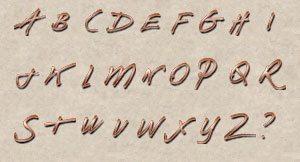 A B C D E F G H I
J K L M N O P Q R
S T U V W X Y Z ?